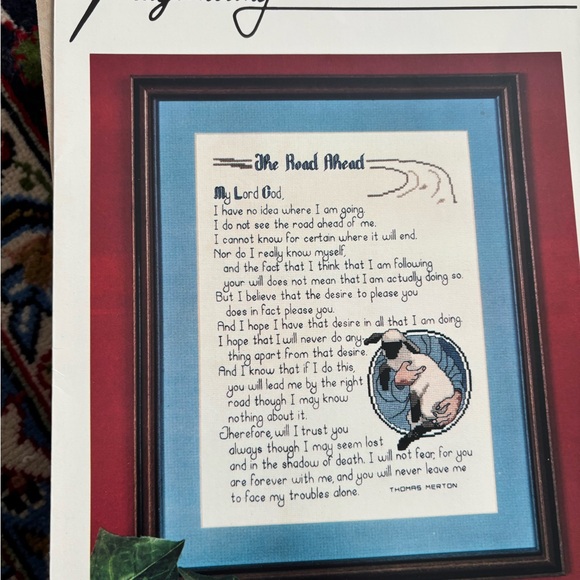 The Road Ahead
My Lord God,
I have no idea where I am going.
I do not see the road ahead of me.
I cannot know for certain where it will end.
Nor do I really know myself,
and the fact that I think that I am following
your will does not mean that I am actually doing so.
But I believe that the desire to please you
does in fact please you.
And I hope I have that desire in all that I am doing.
I hope that I will never do any-
thing apart from that desire.
And I know that if I do this,
you will lead me by the right
road though I may know
nothing about it.
Therefore, will I trust you
always though I may seem lost
and in the shadow of death. I will not fear, for you
are forever with me, and you will never leave me
to face my troubles alone.
THOMAS MERTON